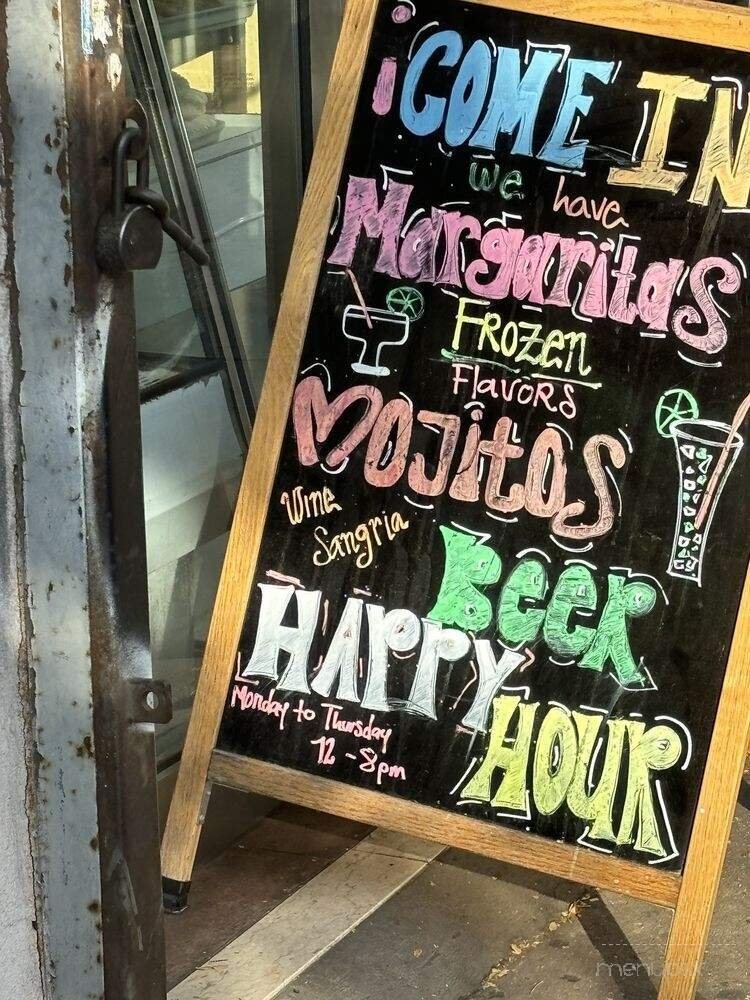 ¡COME IN
we have
Margaritas
Frozen
Flavors
Mojitos
Wine
Sangria
Beer
HAPPY
Monday to Thursday
12 - 8pm
HOUR